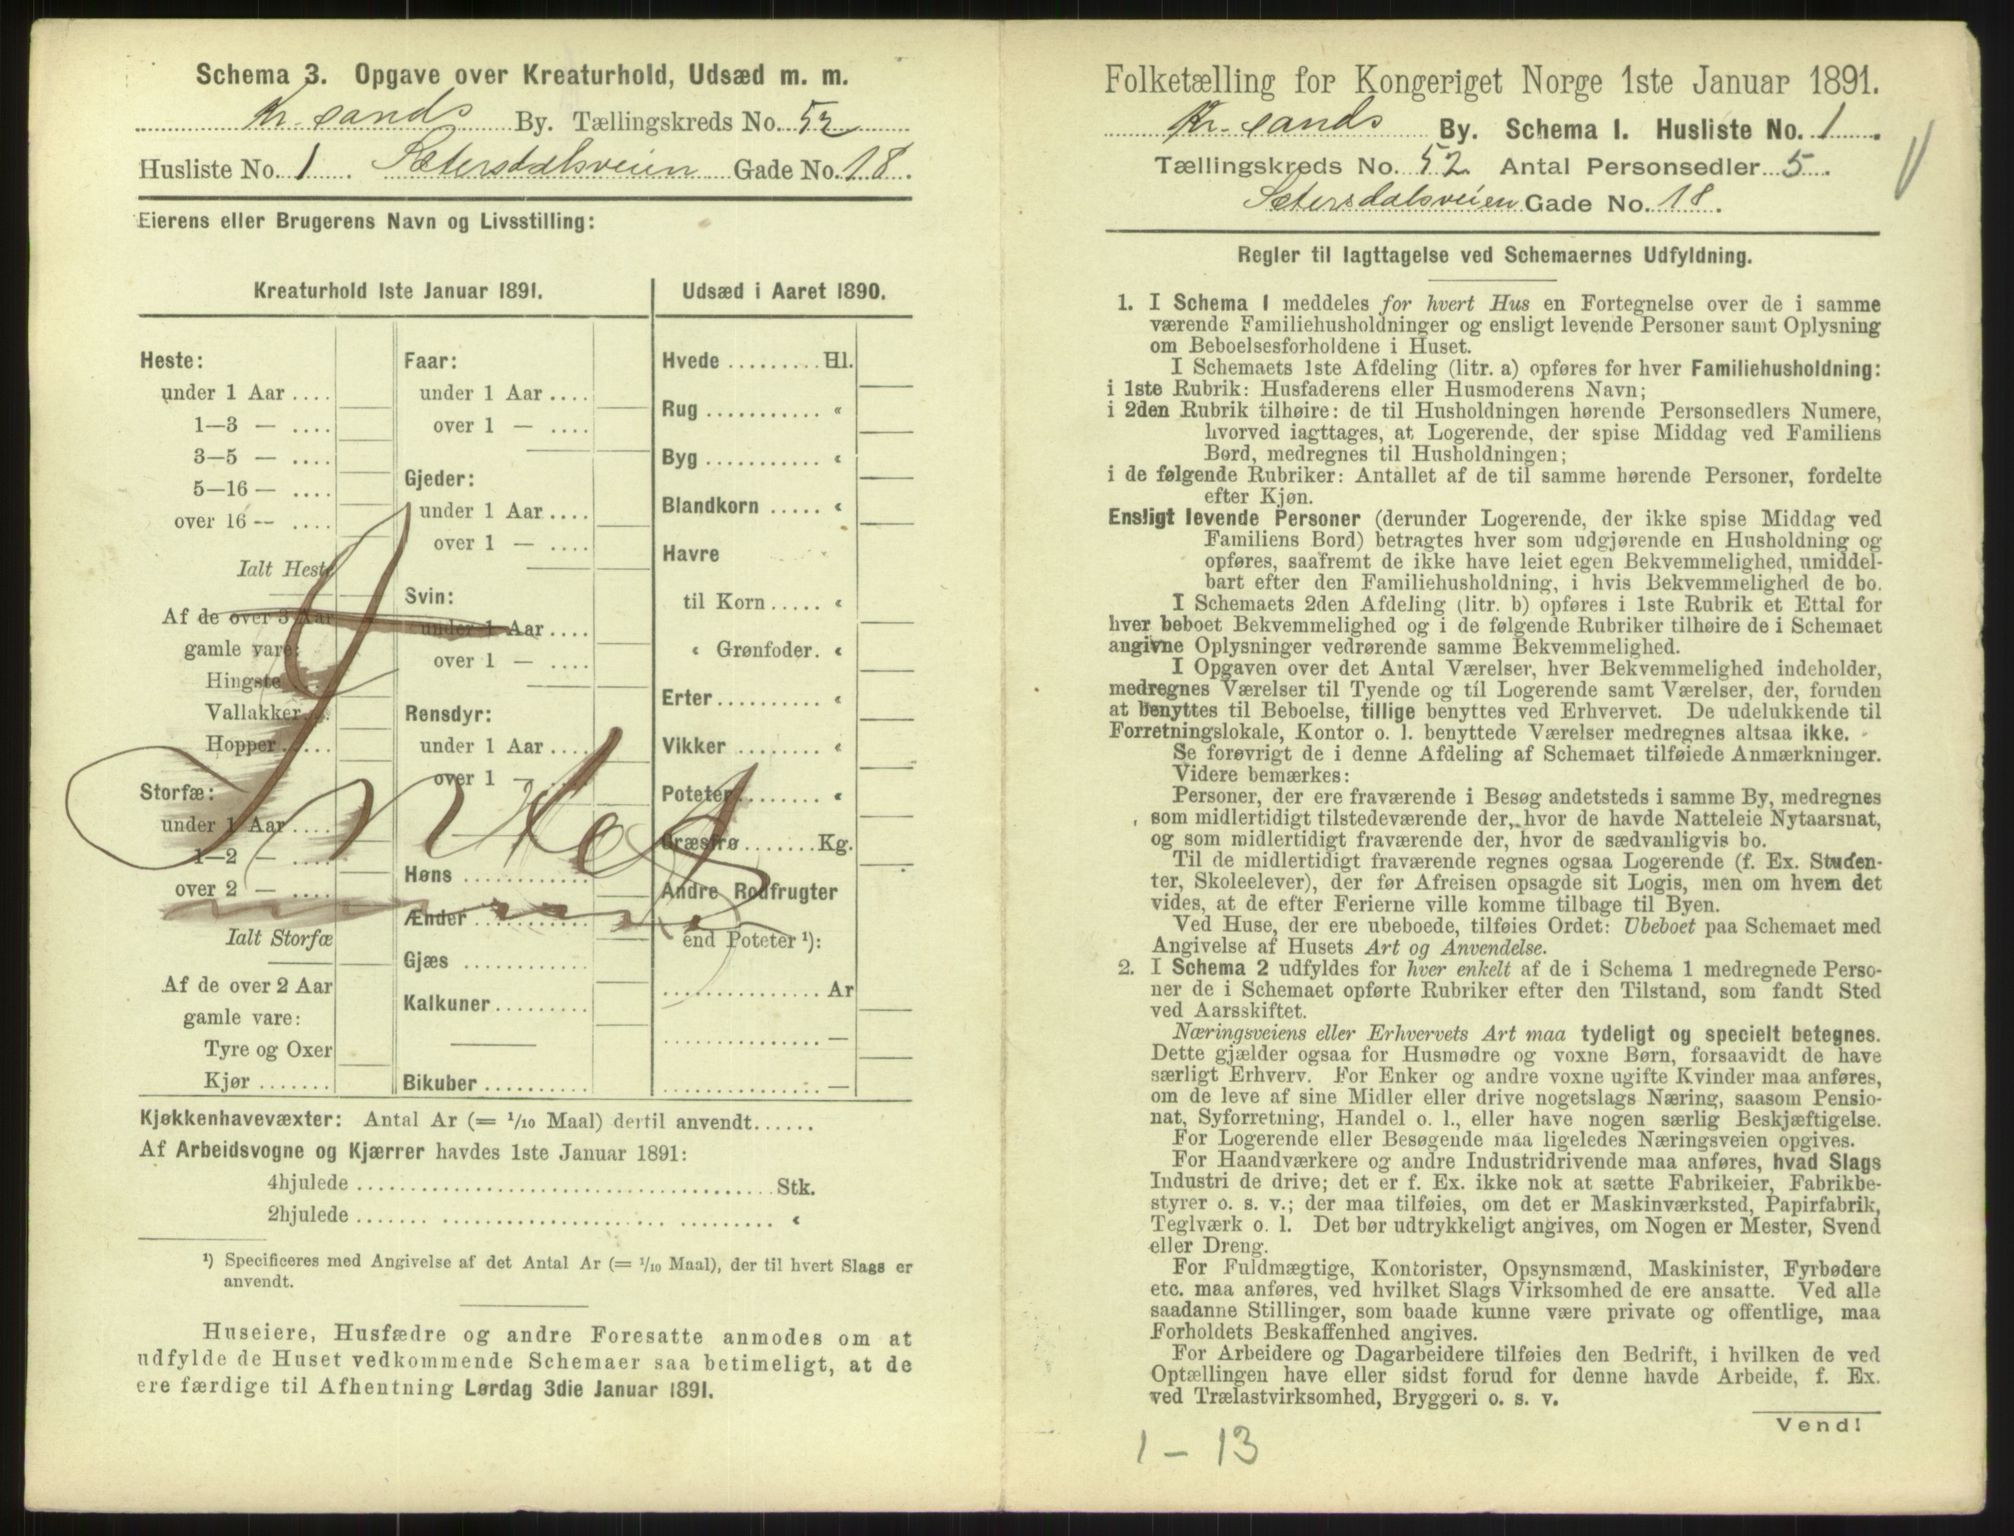 Schema 3. Opgave over Kreaturhold, Udsæd m. m.
Kr. sands By. Tællingskreds No. 52
Husliste No. 1. Sætersdalsveien Gade No. 18.
Eierens eller Brugerens Navn og Livsstilling:
Kreaturhold 1ste Januar 1891.
Heste:
under 1 Aar ....
1—3 — ....
3—5 — ....
5—16 — ....
over 16 — ....
Ialt Heste
Af de over 3 Aar
gamle vare:
Hingste ....
Vallakker ..
Hopper .....
Storfæ:
under 1 Aar ....
1—2 — ....
over 2 — ....
Ialt Storfæ
Af de over 2 Aar
gamle vare:
Tyre og Oxer
Kjør .......
Faar:
under 1 Aar ....
over 1 — ....
Gjeder:
under 1 Aar ....
over 1 — ....
Svin:
under 1 Aar ....
over 1 — ....
Rensdyr:
under 1 Aar ....
over 1 — ....
Høns ............
Ænder ...........
Gjæs ............
Kalkuner .........
Bikuber ..........
Udsæd i Aaret 1890.
Hvede ......... Hl.
Rug ........... «
Byg ........... «
Blandkorn ..... «
Havre
til Korn ..... «
« Grønfoder. «
Erter .......... «
Vikker ........ «
Poteter ........ «
Græsfrø ....... Kg.
Andre Rodfrugter
end Poteter ¹):
............... Ar
............... —
............... —
Intet
Kjøkkenhavevæxter: Antal Ar (= 1/10 Maal) dertil anvendt......
Af Arbeidsvogne og Kjærrer havdes 1ste Januar 1891:
4hjulede ........................................ Stk.
2hjulede ........................................ «
¹) Specificeres med Angivelse af det Antal Ar (= 1/10 Maal), der til hvert Slags er
anvendt.
Huseiere, Husfædre og andre Foresatte anmodes om at
udfylde de Huset vedkommende Schemaer saa betimeligt, at de
ere færdige til Afhentning Lørdag 3die Januar 1891.
Folketælling for Kongeriget Norge 1ste Januar 1891.
Kr. sands By. Schema 1. Husliste No. 1.
Tællingskreds No. 52 Antal Personsedler 5.
Sætersdalsveien Gade No. 18.
Regler til Iagttagelse ved Schemaernes Udfyldning.
1. I Schema 1 meddeles for hvert Hus en Fortegnelse over de i samme
værende Familiehusholdninger og ensligt levende Personer samt Oplysning
om Beboelsesforholdene i Huset.
I Schemaets 1ste Afdeling (litr. a) opføres for hver Familiehusholdning:
i 1ste Rubrik: Husfaderens eller Husmoderens Navn;
i 2den Rubrik tilhøire: de til Husholdningen hørende Personsedlers Numere,
hvorved iagttages, at Logerende, der spise Middag ved Familiens
Bord, medregnes til Husholdningen;
i de følgende Rubriker: Antallet af de til samme hørende Personer, fordelte
efter Kjøn.
Ensligt levende Personer (derunder Logerende, der ikke spise Middag ved
Familiens Bord) betragtes hver som udgjørende en Husholdning og
opføres, saafremt de ikke have leiet egen Bekvemmelighed, umiddel-
bart efter den Familiehusholdning, i hvis Bekvemmelighed de bo.
I Schemaets 2den Afdeling (litr. b) opføres i 1ste Rubrik et Ettal for
hver beboet Bekvemmelighed og i de følgende Rubriker tilhøire de i Schemaet
angivne Oplysninger vedrørende samme Bekvemmelighed.
I Opgaven over det Antal Værelser, hver Bekvemmelighed indeholder,
medregnes Værelser til Tyende og til Logerende samt Værelser, der, foruden
at benyttes til Beboelse, tillige benyttes ved Erhvervet. De udelukkende til
Forretningslokale, Kontor o. l. benyttede Værelser medregnes altsaa ikke.
Se forøvrigt de i denne Afdeling af Schemaet tilføiede Anmærkninger.
Videre bemærkes:
Personer, der ere fraværende i Besøg andetsteds i samme By, medregnes
som midlertidigt tilstedeværende der, hvor de havde Natteleie Nytaarsnat,
og som midlertidigt fraværende der, hvor de sædvanligvis bo.
Til de midlertidigt fraværende regnes ogsaa Logerende (f. Ex. Studen-
ter, Skoleelever), der før Afreisen opsagde sit Logis, men om hvem det
vides, at de efter Ferierne ville komme tilbage til Byen.
Ved Huse, der ere ubeboede, tilføies Ordet: Ubeboet paa Schemaet med
Angivelse af Husets Art og Anvendelse.
2. I Schema 2 udfyldes for hver enkelt af de i Schema 1 medregnede Perso-
ner de i Schemaet opførte Rubriker efter den Tilstand, som fandt Sted
ved Aarsskiftet.
Næringsveiens eller Erhvervets Art maa tydeligt og specielt betegnes.
Dette gjælder ogsaa for Husmødre og voxne Børn, forsaavidt de have
særligt Erhverv. For Enker og andre voxne ugifte Kvinder maa anføres,
om de leve af sine Midler eller drive nogetslags Næring, saasom Pensio-
nat, Syforretning, Handel o. l., eller have nogen særlig Beskjæftigelse.
For Logerende eller Besøgende maa ligeledes Næringsveien opgives.
For Haandværkere og andre Industridrivende maa anføres, hvad Slags
Industri de drive; det er f. Ex. ikke nok at sætte Fabrikeier, Fabrikbe-
styrer o. s. v.; der maa tilføies, om det er Maskinværksted, Papirfabrik,
Teglværk o. l. Det bør udtrykkeligt angives, om Nogen er Mester, Svend
eller Dreng.
For Fuldmægtige, Kontorister, Opsynsmænd, Maskinister, Fyrbødere
etc. maa anføres, ved hvilket Slags Virksomhed de ere ansatte. Ved alle
saadanne Stillinger, som baade kunne være private og offentlige, maa
Forholdets Beskaffenhed angives.
For Arbeidere og Dagarbeidere tilføies den Bedrift, i hvilken de ved
Optællingen have eller sidst forud for denne havde Arbeide, f. Ex.
ved Trælastvirksomhed, Bryggeri o. s. v.
Vend!
1 - 13